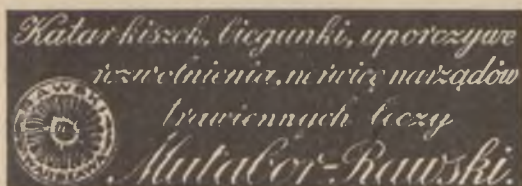 Katar kiszek, biegunki, uporczywe
rozwolnienia, nerwicę narządów
trawiennych leczy
Mutabor-Rawski.